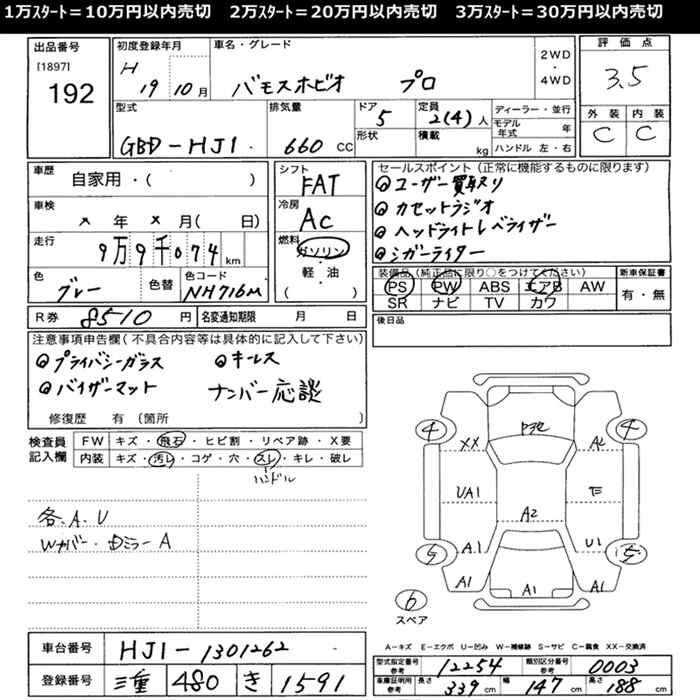 1万ｽﾀｰﾄ＝10万円以内売切　2万ｽﾀｰﾄ＝20万円以内売切　3万ｽﾀｰﾄ＝30万円以内売切
出品番号
[1897]
192
初度登録年月
H 19 10月
車名・グレード
バモスホビオ プロ
2WD・4WD
評価点
3.5
外装 内装
C C
型式
GBD-HJ1
排気量
660 CC
ドア
5
形状
定員
2(4)人
積載
kg
ディーラー・並行
モデル年式 年
ハンドル 左・右
車歴
自家用・( )
車検
年 月( 日)
走行
9万9千074 km
色
グレー
色替
色コード
NH716M
シフト
FAT
冷房
AC
燃料
ガソリン・軽・油
( )
セールスポイント(正常に機能するものに限ります)
ユーザー買取り
カセットラジオ
ヘッドライトレベライザー
シガーライター
装備品(純正品に限り○をつけてください)
PS PW ABS エアB AW
SR ナビ TV カワ
新車保証書
有・無
R券 8510 円
名変通知期限 月 日
後日品
注意事項申告欄(不具合内容等は具体的に記入して下さい)
プライバシーガラス キーレス
バイザーマット ナンバー応談
修復歴 有(箇所 )
検査員記入欄
FW キズ・飛石・ヒビ割・リペア跡・X要
内装 キズ・汚レ・コゲ・穴・スレ・キレ・破レ
ハンドル
各、A、U
Wカバー・ミラーA
4 4
XX A2
UA1
A2
A1 U1
5 5
A1 A1 A1
6
スペア
A-キズ E-エクボ U-凹み W-補修跡 S-サビ C-腐食 XX-交換済
車台番号
HJ1-1301262
登録番号
三重 480 き 1591
型式指定番号 参考
12254
類別区分番号 参考
0003
車庫証明用 参考
長さ 339 cm 幅 147 cm 高さ 188 cm